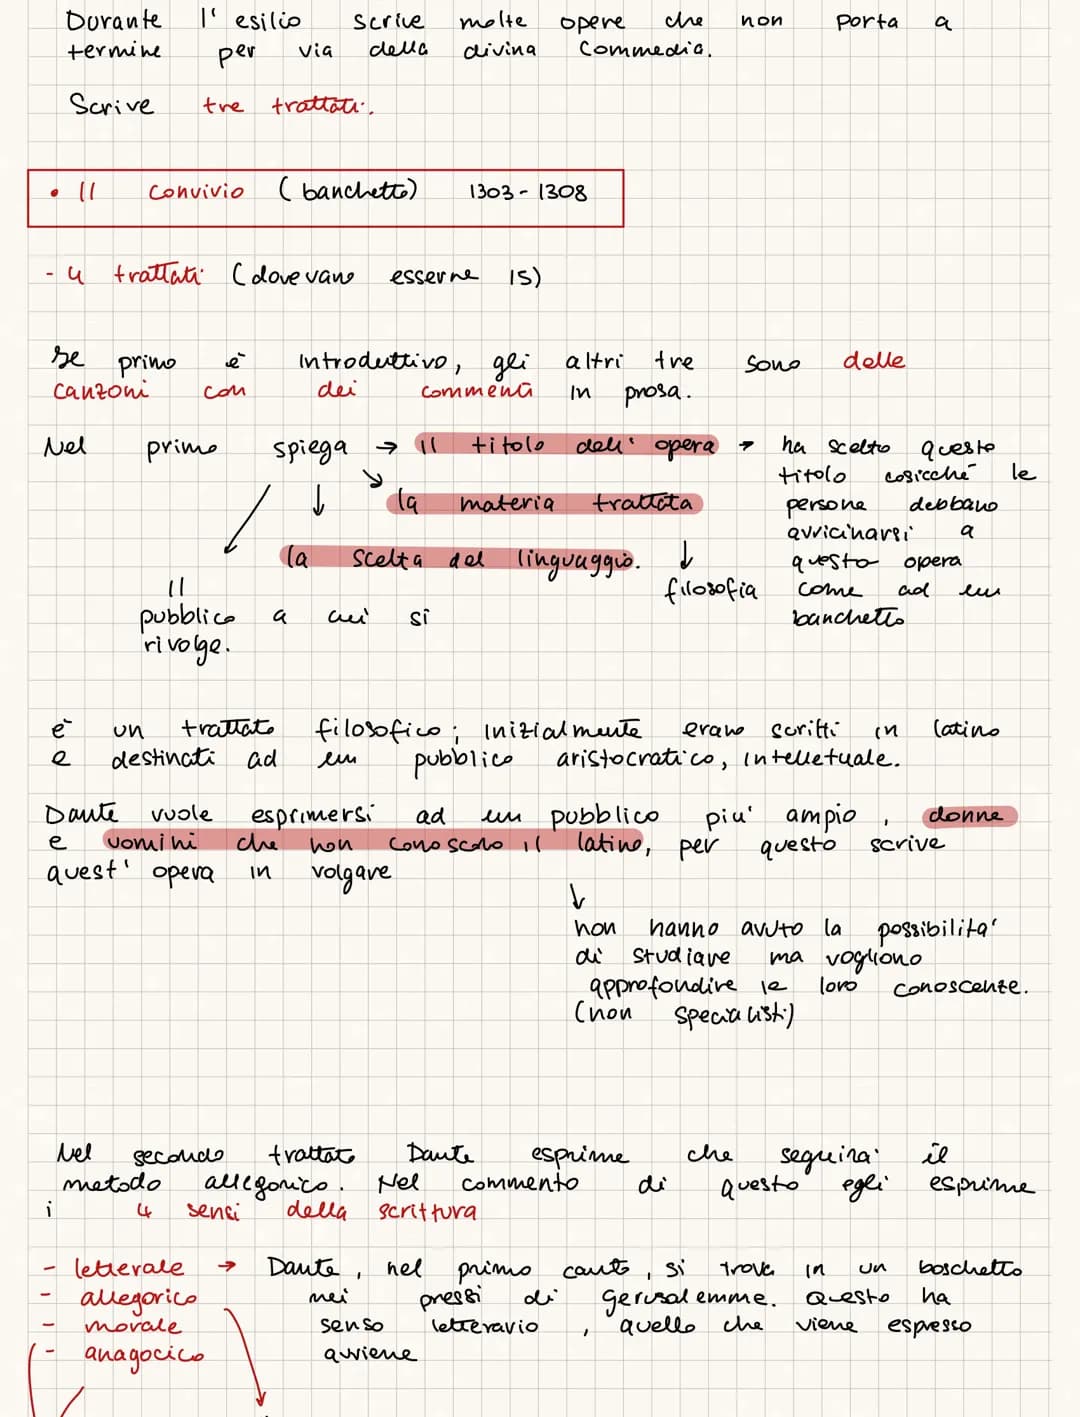 Durante l' esilio scrive molte opere che non porta a
termine per via della divina Commedia.
Scrive tre trattati.
• Il Convivio (banchetto) 1303-1308
- 4 trattati (dovevano esserne 15)
Se primo è introduttivo, gli altri tre sono delle
canzoni con dei commenti in prosa.
Nel primo spiega → il titolo dell' opera → ha scelto questo
titolo cosicché le
persone debbano
avvicinarsi a
questo opera
come ad un
banchetto
↘ la materia trattata
↓ filosofia
↓ la scelta del linguaggio.
↙ il
pubblico a cui si
rivolge.
è un trattato filosofico; inizialmente erano scritti in latino
e destinati ad un pubblico aristocratico, intelletuale.
Dante vuole esprimersi ad un pubblico piu' ampio, donne
e uomini che non conoscono il latino, per questo scrive
quest' opera in volgare
↓
non hanno avuto la possibilita'
di studiare ma vogliono
approfondire le loro conoscenze.
(non specialisti)
Nel secondo trattato Dante esprime che seguira' il
metodo allegorico. Nel commento di questo egli esprime
i 4 sensi della scrittura
- letterale → Dante, nel primo canto, si trova in un boschetto
nei pressi di Gerusalemme. Questo ha
senso letteravio, quello che viene espresso
avviene
- allegorico
- morale
- anagocico